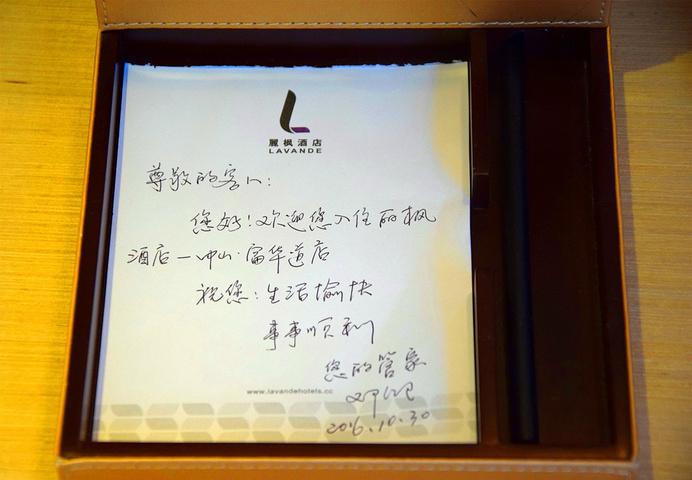 麗枫酒店
LAVANDE
尊敬的客人:
您好!欢迎您入住丽枫
酒店—中山·富华道店
祝您:生活愉快
事事顺利
您的管家
www.lavandehotels.cc
2016.10.30